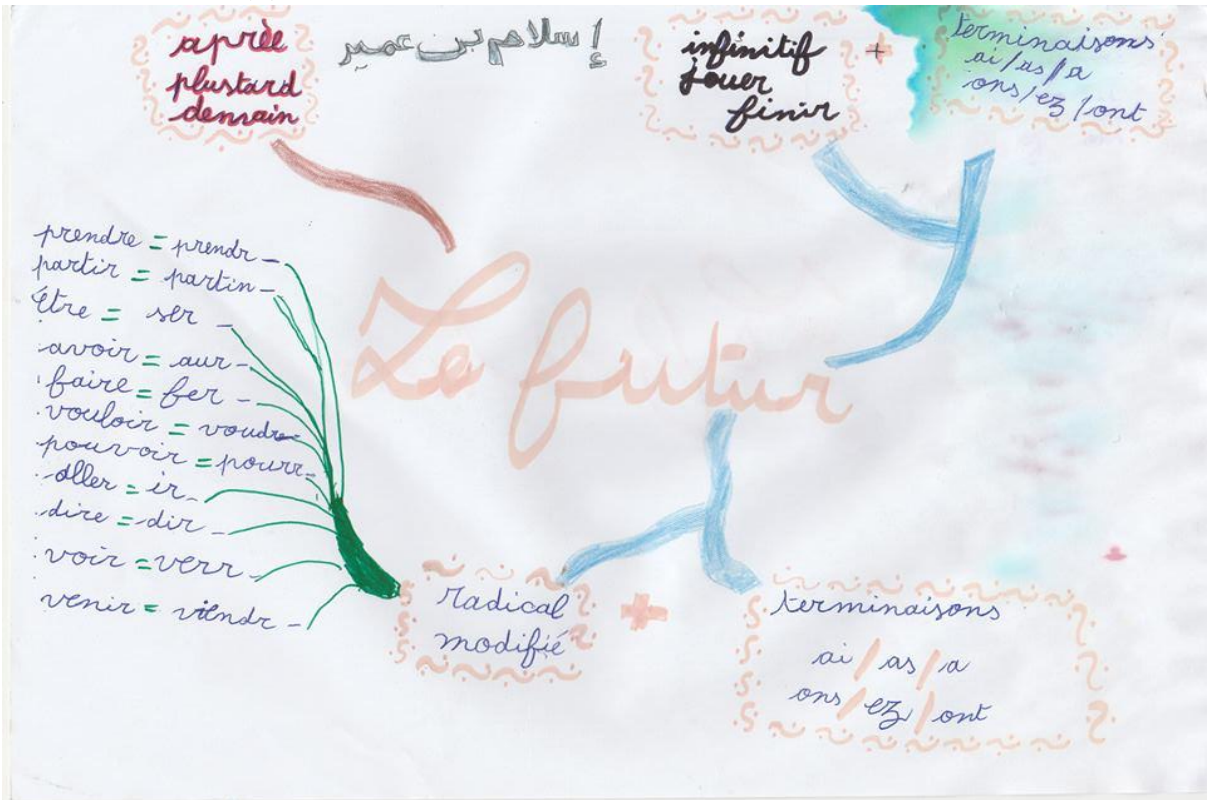 aprèe
plustard
demain
إسلام بن عمير
infinitif
jouer
finir
+
terminaisons
ai/as/a
ons/ez/ont
Le futur
prendre = prendr -
partir = partin -
être = ser -
avoir = aur -
faire = fer -
vouloir = voudr-
pouvoir = pourr-
aller = ir -
dire = dir -
voir = verr -
venir = viendr -
radical
modifié
+
terminaisons
ai / as / a
ons / ez / ont